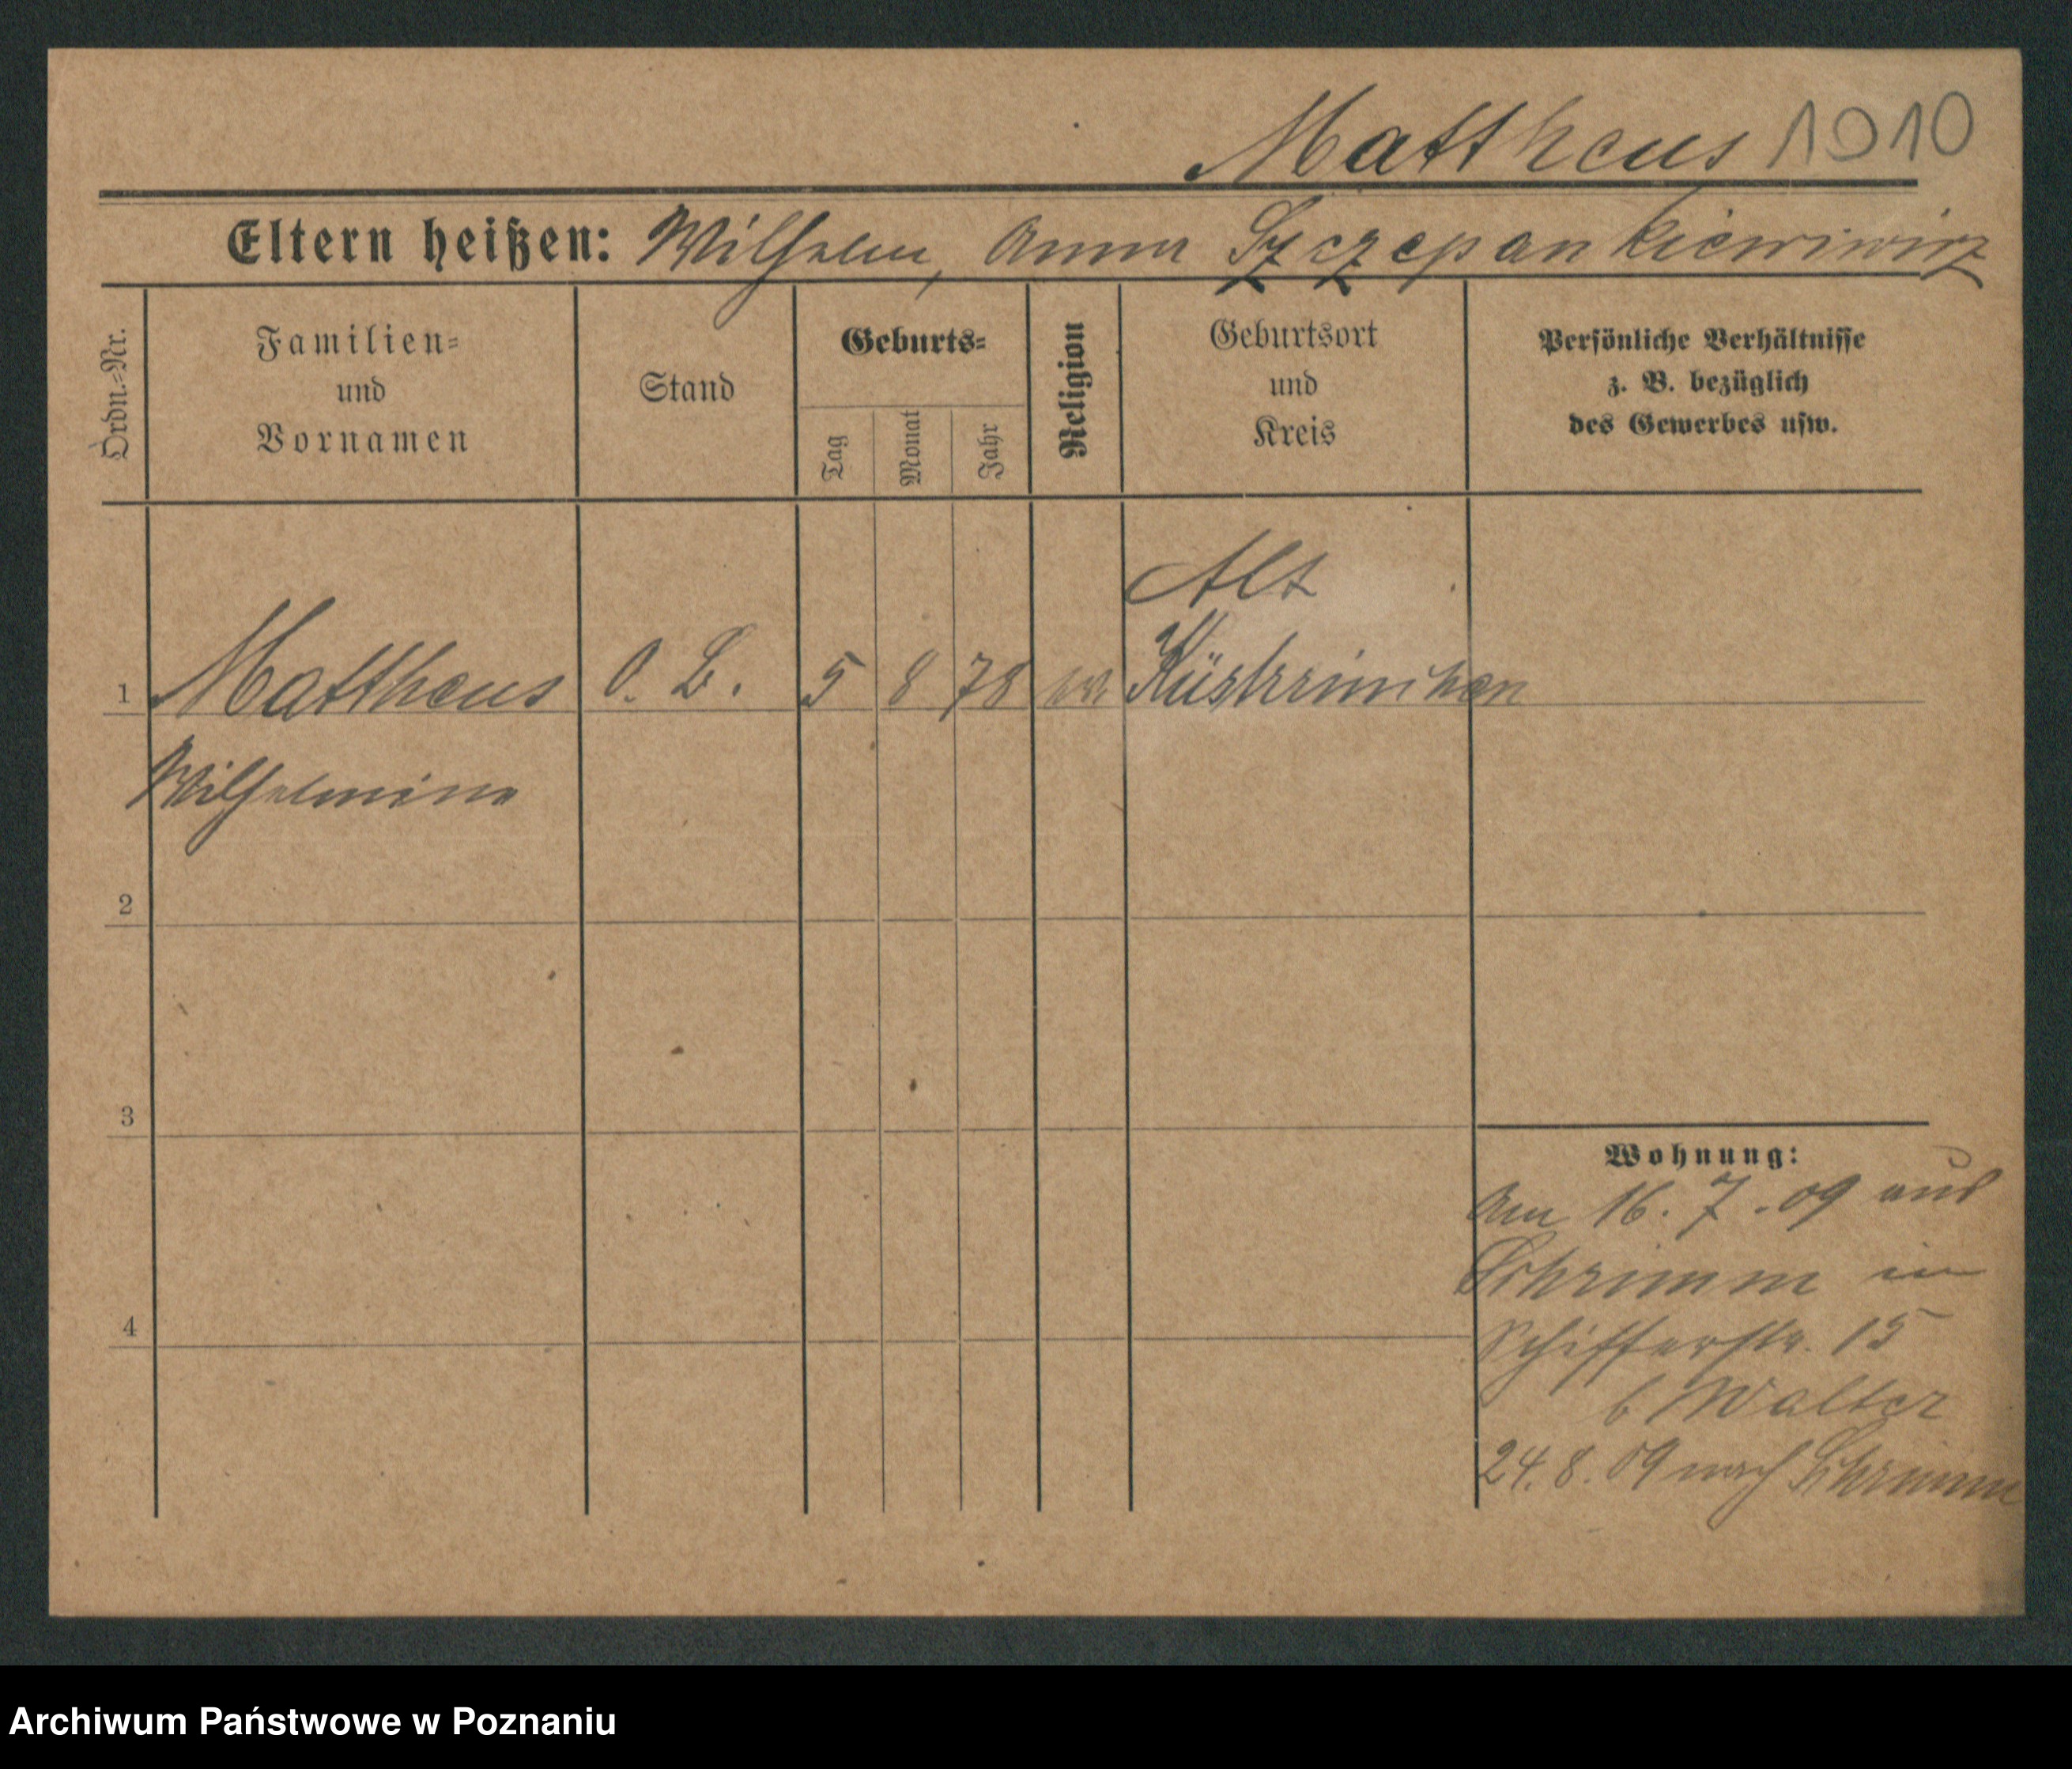 Mattheus 1910
Eltern heißen: Wilhelm, Anna Szczepankiewiwicz
Ordn.=Nr.
Familien=
und
Vornamen
Stand
Geburts=
Tag
Monat
Jahr
Religion
Geburtsort
und
Kreis
Persönliche Verhältnisse
z. B. bezüglich
des Gewerbes usw.
Alt
1 Mattheus O. L. 5 8 78 Küstrinchen
Wilhelmine
2
3
4
Wohnung:
Am 16. 7. 09 aus
Schrimm in
Schifferstr. 15
b Walter
24. 8. 09 nach Schrimm
Archiwum Państwowe w Poznaniu